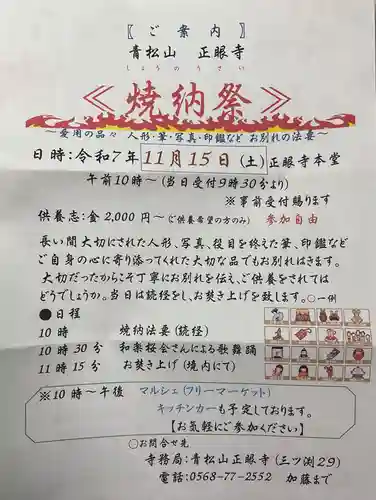 〖 ご 案 内 〗
青松山 正眼寺
しょうのうさい
≪ 焼納祭 ≫
～愛用の品々 人形・筆・写真・印鑑など お別れの法要～
日時:令和7年 11月15日 (土) 正眼寺本堂
午前10時～(当日受付9時30分より)
※事前受付賜ります
供養志:金2,000円～(ご供養希望の方のみ) 参加自由
長い間大切にされた人形、写真、役目を終えた筆、印鑑など
ご自身の心に寄り添ってくれた大切な品でもお別れはきます。
大切だったからこそ丁寧にお別れを伝え、ご供養をされては
どうでしょうか。当日は読経をし、お焚き上げを致します。○一例
●日程
10時 焼納法要(読経)
10時30分 和楽桜会さんによる歌舞踊
11時15分 お焚き上げ(境内にて)
※10時～午後 マルシェ(フリーマーケット)
キッチンカーも予定しております。
【お気軽にご参加ください】
○お問合せ先
寺務局:青松山正眼寺(三ツ渕29)
電話:0568-77-2552 加藤まで